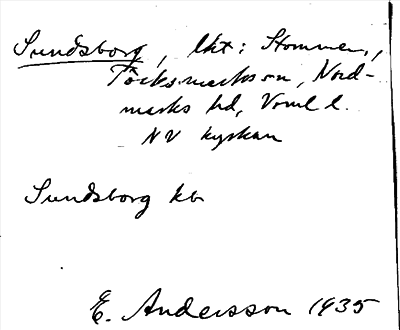 Sundsborg, lht: Stommen,
Töcksmarks sn, Nord-
marks hd, Vrml l.
NV kyrkan
Sundsborg kb
E. Andersson 1935